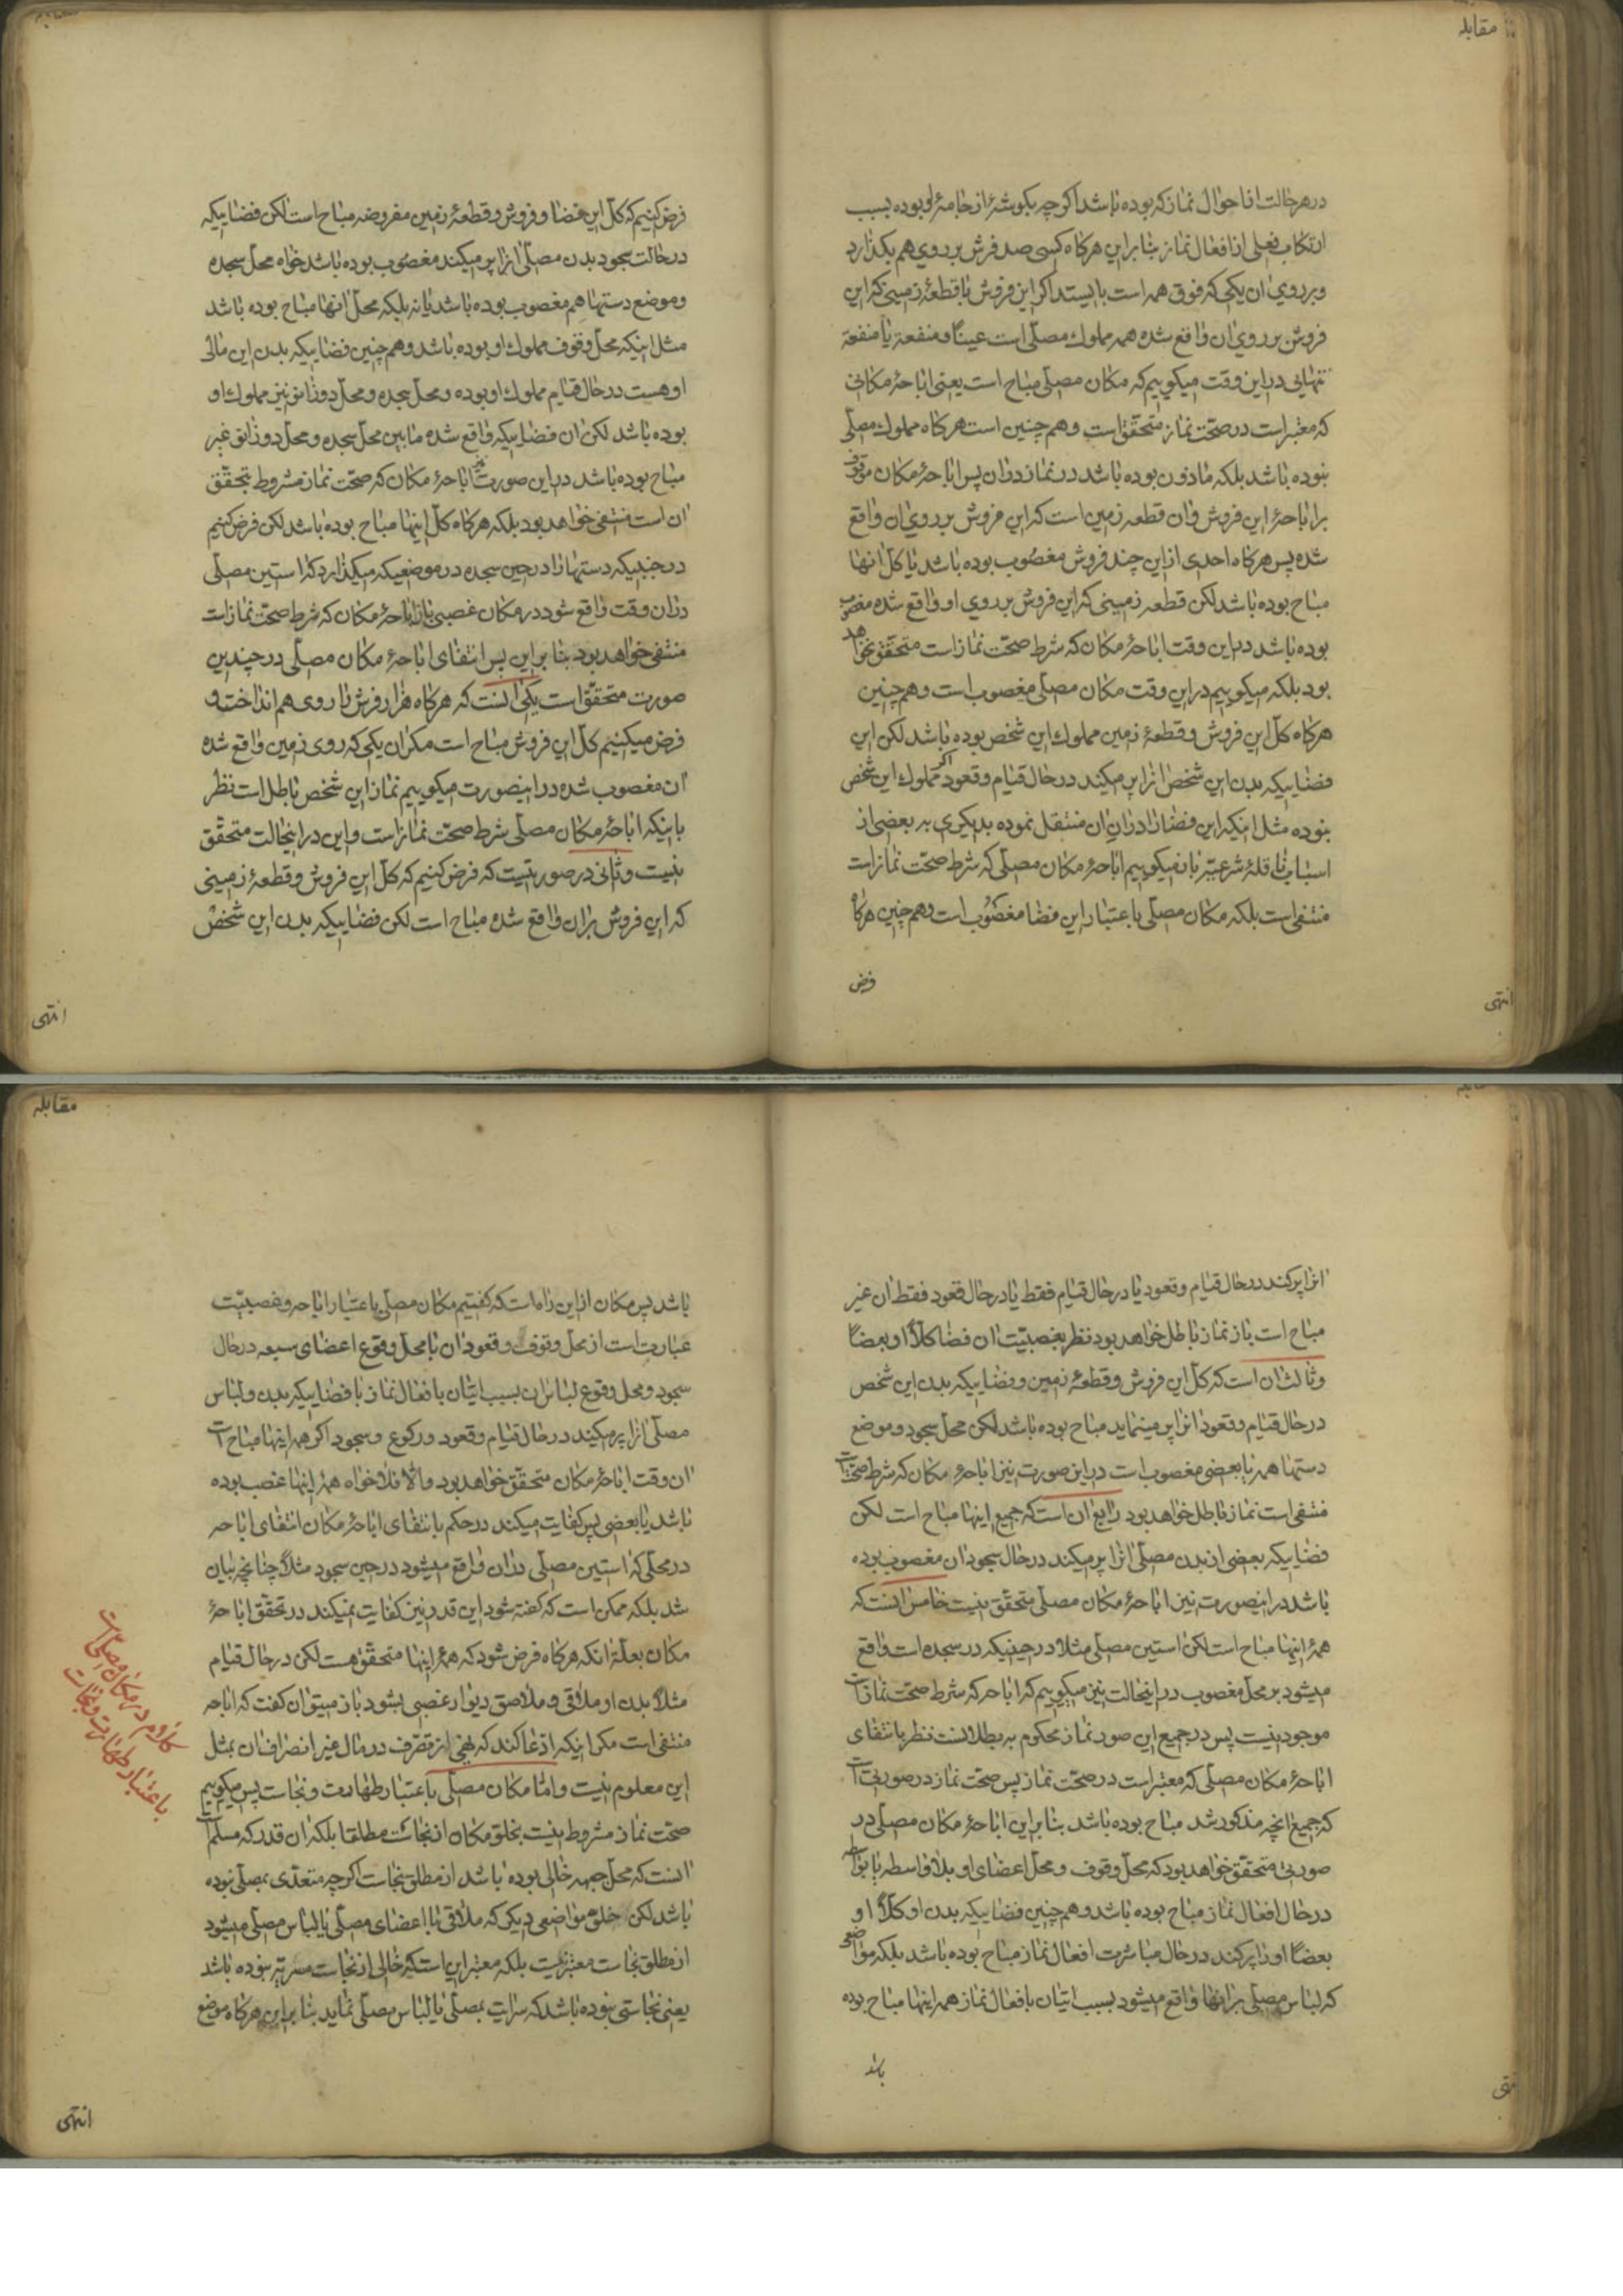 مقابله
در هر حالت از احوال نماز که بوده باشد اگرچه بگوشهٔ از جامهٔ او بوده بسبب
ارتکاب فعلی از افعال نماز بنابراین هرگاه کسی صد فرش بر روی هم بگذارد
و بر روی ان یکی که فوق همه است بایستد اگر این فروش با قطعهٔ زمینی که این
فروش بر روی ان واقع شده همه مملوک مصلّی است عیناً و منفعة یا منفعة
تنهائی در این وقت میگوییم که مکان مصلّی مباح است یعنی اباحهٔ مکانی
که معتبر است در صحّت نماز متحقّق است و هم چنین است هرگاه مملوک مصلّی
نبوده باشد بلکه ماذون بوده باشد در نماز در ان پس اباحهٔ مکان موقوف
بر اباحهٔ این فروش و ان قطعه زمین است که این فروش بر روی ان واقع
شده پس هرگاه احدی از این چند فروش مغصوب بوده باشد یا کل انها
مباح بوده باشد لکن قطعه زمینی که این فروش بر روی او واقع شده مغصوب
بوده باشد در این وقت اباحهٔ مکان که شرط صحّت نماز است متحقّق نخواهد
بود بلکه میگوییم در این وقت مکان مصلّی مغصوب است و هم چنین
هرگاه کلّ این فروش و قطعهٔ زمین مملوک این شخص بوده باشد لکن این
فضاییکه بدن این شخص انرا پر میکند در حال قیام و قعود اگر مملوک این شخص
نبوده مثل اینکه این فضا را در ان ان منتقل نموده بدیگری به بعضی از
اسباب ناقلهٔ شرعیّه باز میگوییم اباحهٔ مکان مصلّی که شرط صحّت نماز است
منتفی است بلکه مکان مصلّی باعتبار این فضا مغصوب است و هم چنین هرگاه
فرض
انتهی
فرض کنیم که کلّ این فضا و فروش و قطعهٔ زمین مفروضه مباح است لکن فضاییکه
در حالت سجود بدن مصلّی انرا پر میکند مغصوب بوده باشد خواه محل سجده
و موضع دستها هم مغصوب بوده باشد یا نه بلکه محلّ انها مباح بوده باشد
مثل اینکه محلّ وقوف مملوک او بوده باشد و هم چنین فضاییکه بدن این مالی
او هست در حال قیام مملوک او بوده و محلّ سجده و محلّ دو زانو نیز مملوک او
بوده باشد لکن ان فضاییکه واقع شده مابین محلّ سجده و محلّ دو زانو غیر
مباح بوده باشد در این صورت نیز اباحهٔ مکان که صحّت نماز مشروط بتحقّق
ان است منتفی خواهد بود بلکه هرگاه کلّ اینها مباح بوده باشد لکن فرض کنیم
در حینیکه دستها را در حین سجده در موضعیکه میگذارد که استین مصلّی
در ان وقت واقع شود در مکان غصبی باز اباحهٔ مکان که شرط صحّت نماز است
منتفی خواهد بود بنابراین پس انتفای اباحهٔ مکان مصلّی در چندین
صورت متحقّق است یکی انست که هرگاه هزار فرش را روی هم انداخته و
فرض میکنیم کلّ این فروش مباح است مگر ان یکی که روی زمین واقع شده
ان مغصوب شده در اینصورت میگوییم نماز این شخص باطل است نظر
باینکه اباحهٔ مکان مصلّی شرط صحّت نماز است و این در اینحالت متحقّق
نیست و ثانی در صورتیست که فرض کنیم که کلّ این فروش و قطعهٔ زمینی
که این فروش بر ان واقع شده مباح است لکن فضاییکه بدن این شخص
انتهی
انرا پر کند در حال قیام و قعود یا در حال قیام فقط یا در حال قعود فقط ان غیر
مباح است باز نماز باطل خواهد بود نظر بغصبیّت ان فضا کلاً او بعضاً
و ثالث ان است که کلّ این فروش و قطعهٔ زمین و فضاییکه بدن این شخص
در حال قیام و قعود انرا پر مینماید مباح بوده باشد لکن محلّ سجود و موضع
دستها همه یا بعضی مغصوب است در این صورت نیز اباحهٔ مکان که شرط صحّت است
منتفی است نماز باطل خواهد بود رابع ان است که جمیع اینها مباح است لکن
فضاییکه بعضی از بدن مصلّی انرا پر میکند در حال سجود ان مغصوب بوده
باشد در اینصورت نیز اباحهٔ مکان مصلّی متحقّق نیست خامس انست که
همهٔ اینها مباح است لکن استین مصلّی مثلا در حینیکه در سجده است واقع
میشود بر محلّ مغصوب در اینحالت نیز میگوییم که اباحه که شرط صحّت نماز است
موجود نیست پس در جمیع این صور نماز محکوم به بطلانست نظر بانتفای
اباحهٔ مکان مصلّی که معتبر است در صحّت نماز پس صحّت نماز در صورتی است
که جمیع انچه مذکور شد مباح بوده باشد بنابراین اباحهٔ مکان مصلّی در
صورتی متحقّق خواهد بود که محلّ وقوف و محلّ اعضای او بلا واسطه یا بواسطه
در حال افعال نماز مباح بوده باشد و هم چنین فضاییکه بدن او کلاً او
بعضاً او را پر کند در حال مباشرت افعال نماز مباح بوده باشد بلکه مواضعی
که لباس مصلّی بر انها واقع میشود بسبب اتیان بافعال نماز همه اینها مباح بوده
باشد
مقابله
باشد پس مکان از این راه است که گفتیم مکان مصلّی باعتبار اباحه و غصبیّت
عبارت است از محلّ وقوف و قعود ان با محلّ وقوع اعضای سبعه در حال
سجود و محل وقوع لباس ان بسبب اتیان بافعال نماز با فضاییکه بدن و لباس
مصلّی انرا پر میکنند در حال قیام و قعود و رکوع و سجود اگر همه اینها مباح است
ان وقت اباحهٔ مکان متحقّق خواهد بود و الّا فلا خواه همهٔ اینها غصب بوده
باشد یا بعضی پس کفایت میکند در حکم بانتفای اباحهٔ مکان انتفای اباحه
در محلّی که استین مصلّی در ان واقع میشود در حین سجود مثلاً چنانچه بیان
شد بلکه ممکن است که گفته شود این قدر نیز کفایت نمیکند در تحقّق اباحهٔ
مکان بعلّة انکه هرگاه فرض شود که همهٔ اینها متحقّق هست لکن در حال قیام
مثلاً بدن او ملاقی و ملاصق دیوار غصبی بشود باز میتوان گفت که اباحه
منتفی است مگر اینکه ادّعا کند که نهی از تصرّف در مال غیر انصراف ان بمثل
این معلوم نیست و امّا مکان مصلّی باعتبار طهارت و نجاست پس میگوییم
صحّت نماز مشروط نیست بخلوّ مکان از نجاست مطلقا بلکه ان قدر که مسلّم است
انست که محلّ جبهه خالی بوده باشد از مطلق نجاست اگرچه متعدّی بمصلّی نبوده
باشد لکن خلوّ مواضعی دیگر که ملاقی با اعضای مصلّی یا لباس مصلّی میشود
از مطلق نجاست معتبر نیست بلکه معتبر این است که خالی از نجاست مسریه بوده باشد
یعنی نجاستی نبوده باشد که سرایت بمصلّی یا لباس مصلّی نماید بنابراین هرگاه موضع
کلام در مکان مصلّی است
باعتبار طهارت و نجاست
انتهی